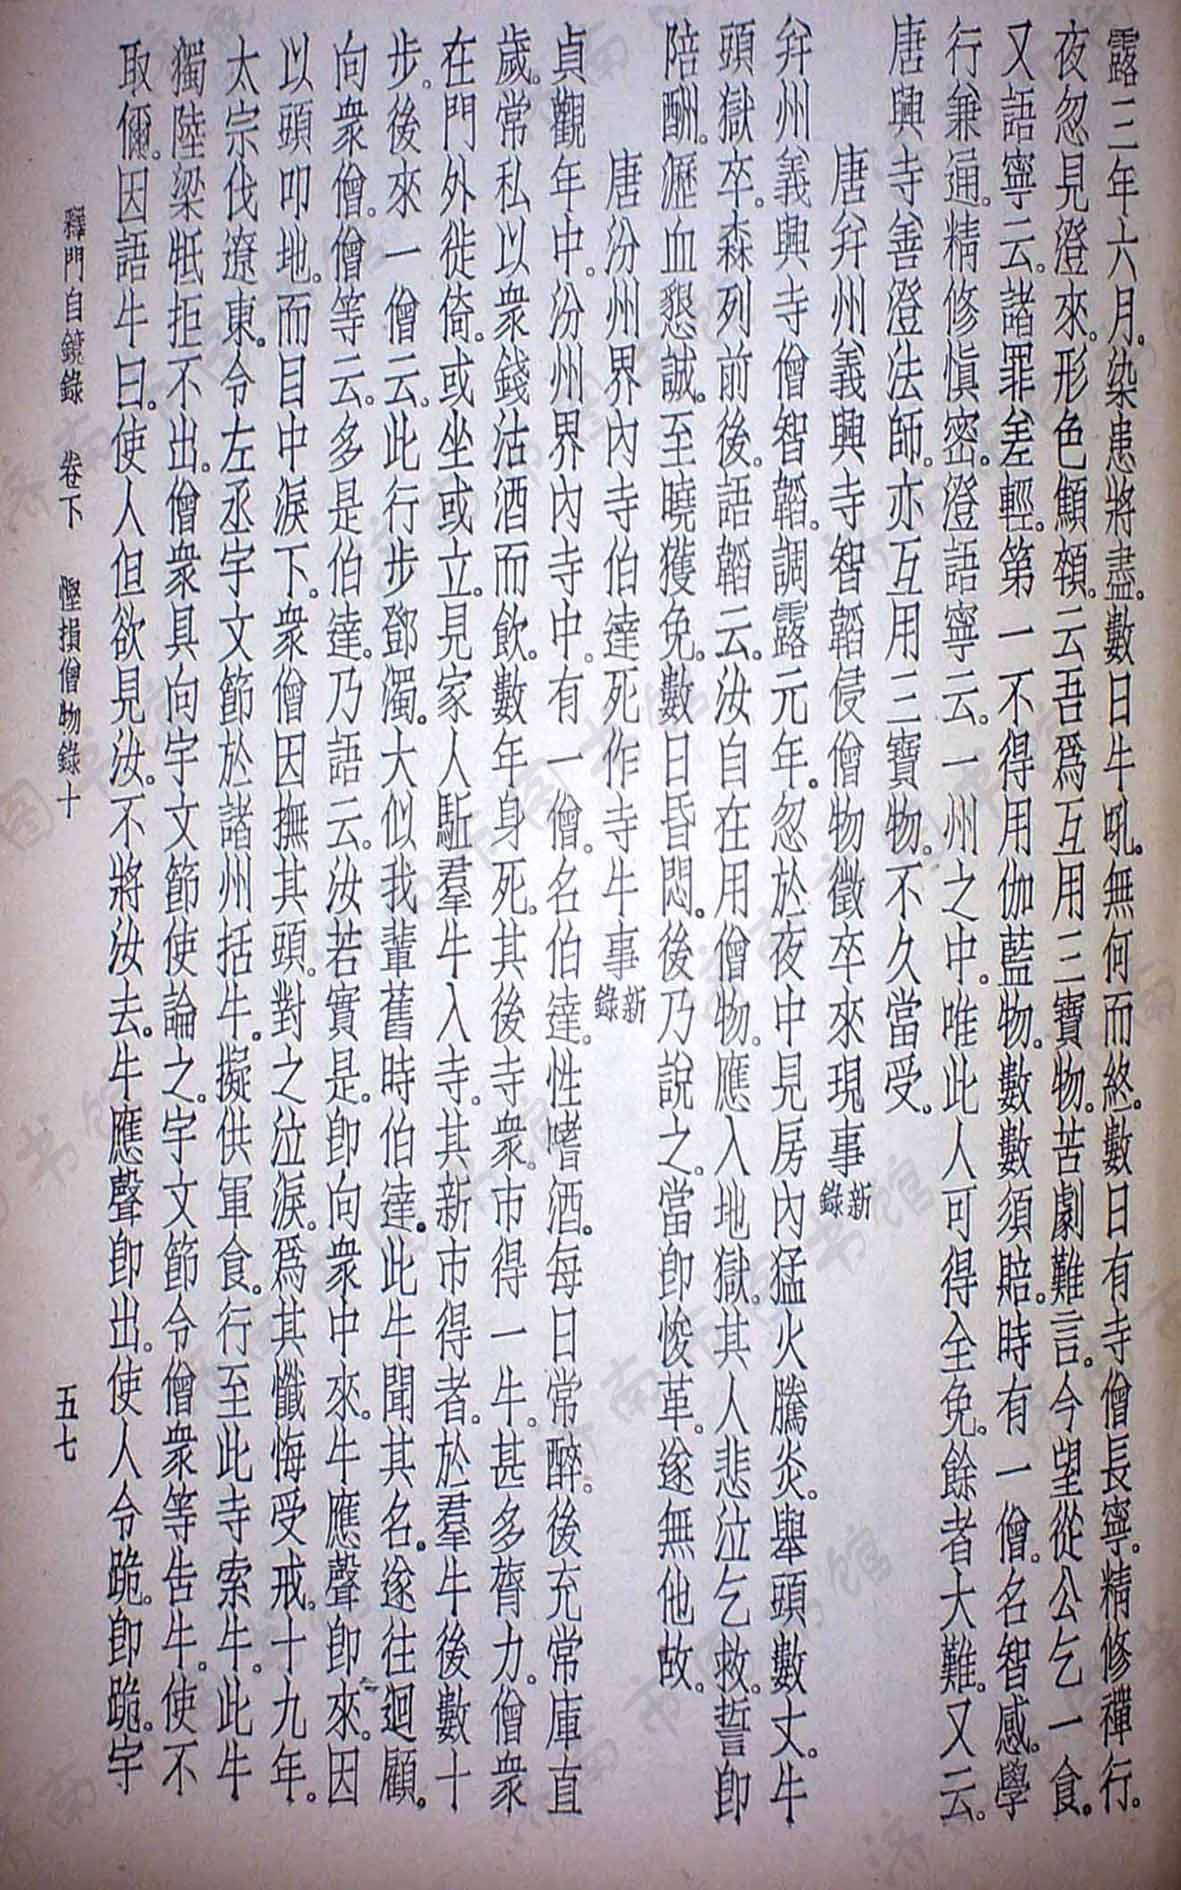 露三年六月。染患將盡。數日牛吼。無何而終。數日有寺僧長寧。精修禪行。
夜忽見澄來。形色顦顇。云吾爲互用三寶物。苦劇難言。今望從公乞一食。
又語寧云。諸罪差輕。第一不得用伽藍物。數數須賠。時有一僧。名智感。學
行兼通。精修愼密。澄語寧云。一州之中。唯此人可得全免。餘者大難。又云。
唐興寺善澄法師。亦互用三寶物。不久當受。
唐幷州義興寺智韜侵僧物徵卒來現事新錄
幷州義興寺僧智韜。調露元年。忽於夜中見房內猛火騰炎。舉頭數丈。牛
頭獄卒。森列前後。語韜云。汝自在用僧物。應入地獄。其人悲泣乞救。誓卽
陪酬。瀝血懇誠。至曉獲免。數日昏悶。後乃說之。當卽悛革。遂無他故。
唐汾州界內寺伯達死作寺牛事新錄
貞觀年中。汾州界內寺中。有一僧。名伯達。性嗜酒。每日常醉。後充常庫直
歲。常私以衆錢沽酒而飲。數年身死。其後寺衆。市得一牛。甚多膂力。僧衆
在門外徙倚。或坐或立。見家人駈羣牛入寺。其新市得者。於羣牛後數十
步。後來一僧云。此行步鄧濁。大似我輩舊時伯達。此牛聞其名。遂往迴顧。
向衆僧。僧等云。多是伯達。乃語云。汝若實是。卽向衆中來。牛應聲卽來。因
以頭叩地。而目中淚下。衆僧因撫其頭。對之泣淚。爲其懺悔受戒。十九年。
太宗伐遼東。令左丞宇文節於諸州括牛。擬供軍食。行至此寺索牛。此牛
獨陸梁牴拒不出。僧衆具向宇文節使論之。宇文節令僧衆等告牛。使不
取儞。因語牛曰。使人但欲見汝。不將汝去。牛應聲卽出。使人令跪。卽跪。宇
釋門自鏡錄　卷下　慳損僧物錄十
五七